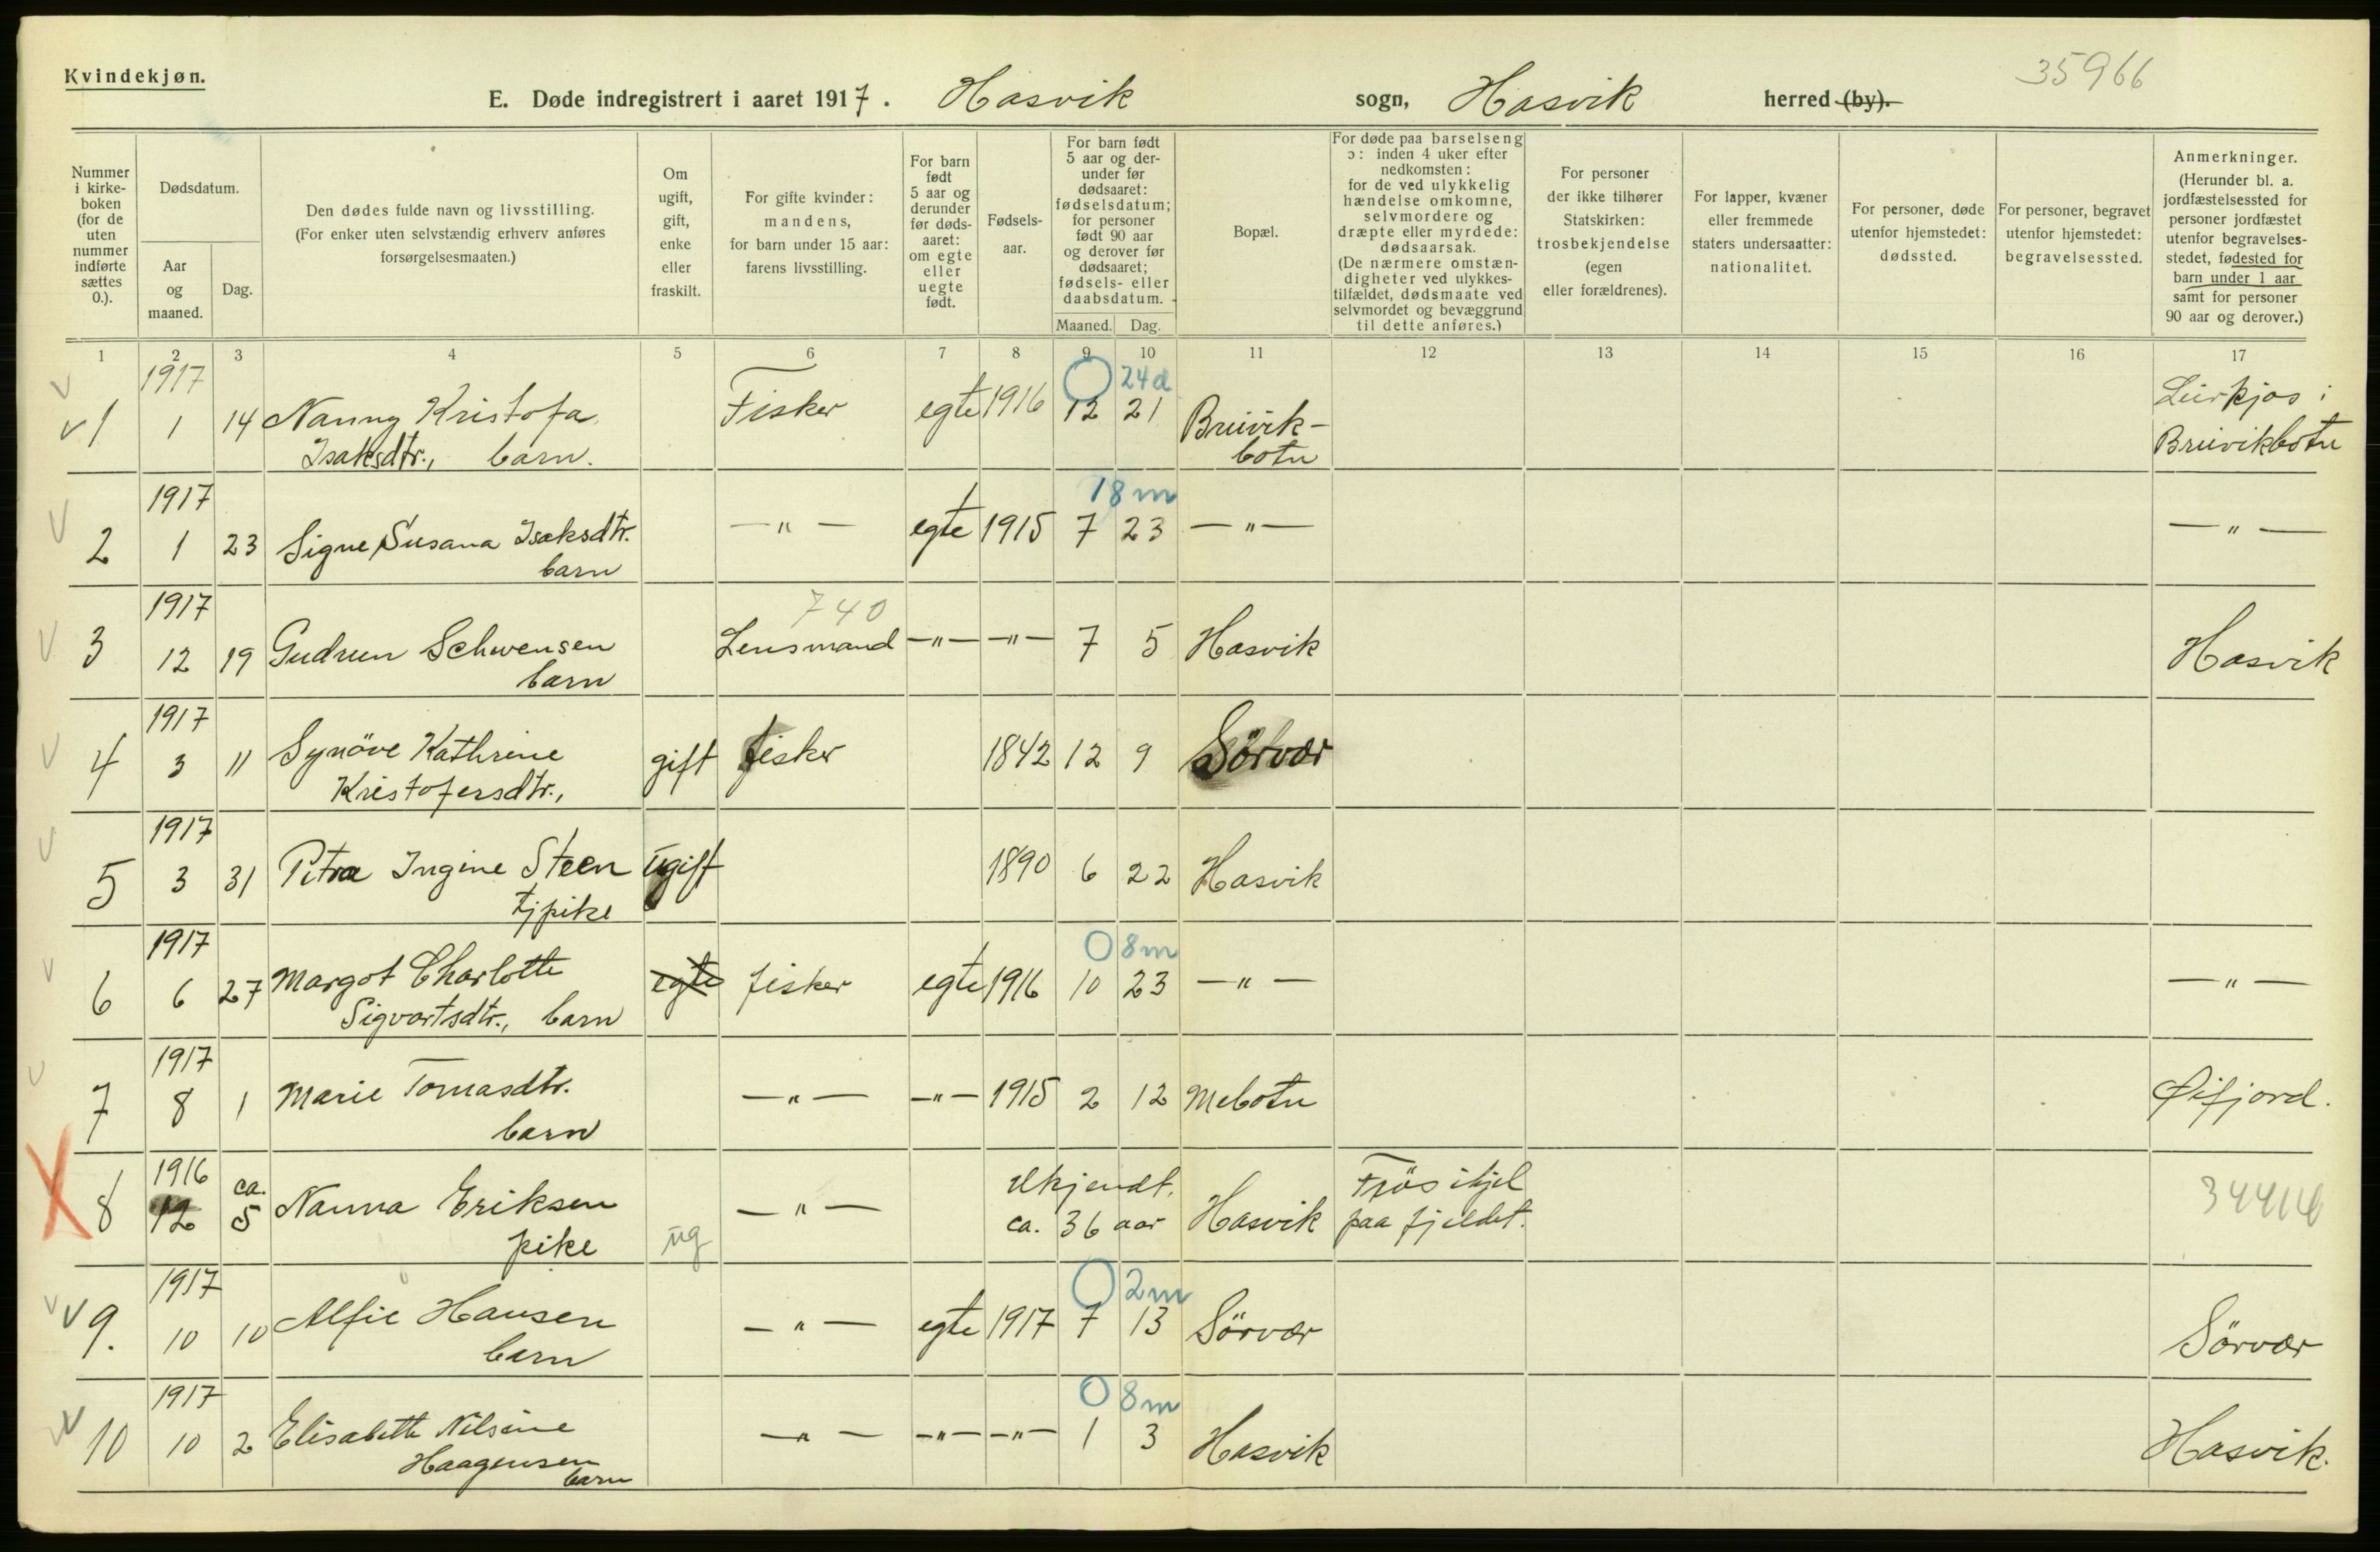 Kvindekjøn.
35966
E. Døde indregistrert i aaret 1917. Hasvik sogn, Hasvik herred (by).
Nummer i kirkeboken (for de uten nummer indførte sættes 0.).
Dødsdatum.
Aar og maaned.
Dag.
Den dødes fulde navn og livsstilling.
(For enker uten selvstændig erhverv anføres
forsørgelsesmaaten.)
Om ugift, gift, enke eller fraskilt.
For gifte kvinder: mandens, for barn under 15 aar: farens livsstilling.
For barn født 5 aar og derunder før dødsaaret: om egte eller uegte født.
Fødselsaar.
For barn født 5 aar og derunder før dødsaaret: fødselsdatum; for personer født 90 aar og derover før dødsaaret; fødsels- eller daabsdatum.
Maaned. Dag.
Bopæl.
For døde paa barselseng ɔ: inden 4 uker efter nedkomsten: for de ved ulykkelig hændelse omkomne, selvmordere og dræpte eller myrdede: dødsaarsak. (De nærmere omstændigheter ved ulykkestilfældet, dødsmaate ved selvmordet og bevæggrund til dette anføres.)
For personer der ikke tilhører Statskirken: trosbekjendelse (egen eller forældrenes).
For lapper, kvæner eller fremmede staters undersaatter: nationalitet.
For personer, døde utenfor hjemstedet: dødssted.
For personer, begravet utenfor hjemstedet: begravelsessted.
Anmerkninger. (Herunder bl. a. jordfæstelsessted for personer jordfæstet utenfor begravelsesstedet, fødested for barn under 1 aar samt for personer 90 aar og derover.)
1 2 3 4 5 6 7 8 9 10 11 12 13 14 15 16 17
1917 0 24d
1 1 14 Nanny Kristofa Fisker egte 1916 12 21 Bruvik- Leirkjos i
Isaksdtr., barn. botn Bruvikbotn
1917 18m
2 1 23 Signe Susana Isaksdtr. —"— egte 1915 7 23 —"— —"—
barn
1917 740
3 12 19 Gudrun Schwensen Lensmand —"— —"— 7 5 Hasvik Hasvik
barn
1917
4 3 11 Synöve Kathrine gift fisker 1842 12 9 Sörvær
Kristofersdtr.,
1917
5 3 31 Petra Ingine Steen ugift 1890 6 22 Hasvik
tjpike
1917 0 8m
6 6 27 Margot Charlotte egte fisker egte 1916 10 23 —"— —"—
Sigvartsdtr., barn
1917
7 8 1 Marie Tomasdtr. —"— —"— 1915 2 12 Mebotn Øifjord.
barn
1916 ca. Ukjendt. Frös ihjel
8 12 5 Nanna Eriksen ug —"— ca. 36 aar Hasvik paa fjeldet.
pike
1917 0 2m
9. 10 10 Alfie Hansen —"— egte 1917 7 13 Sörvær Sörvær
barn
1917 0 8m
10 10 2 Elisabeth Nilsine —"— —"— —"— 1 3 Hasvik Hasvik.
Haagensen
barn